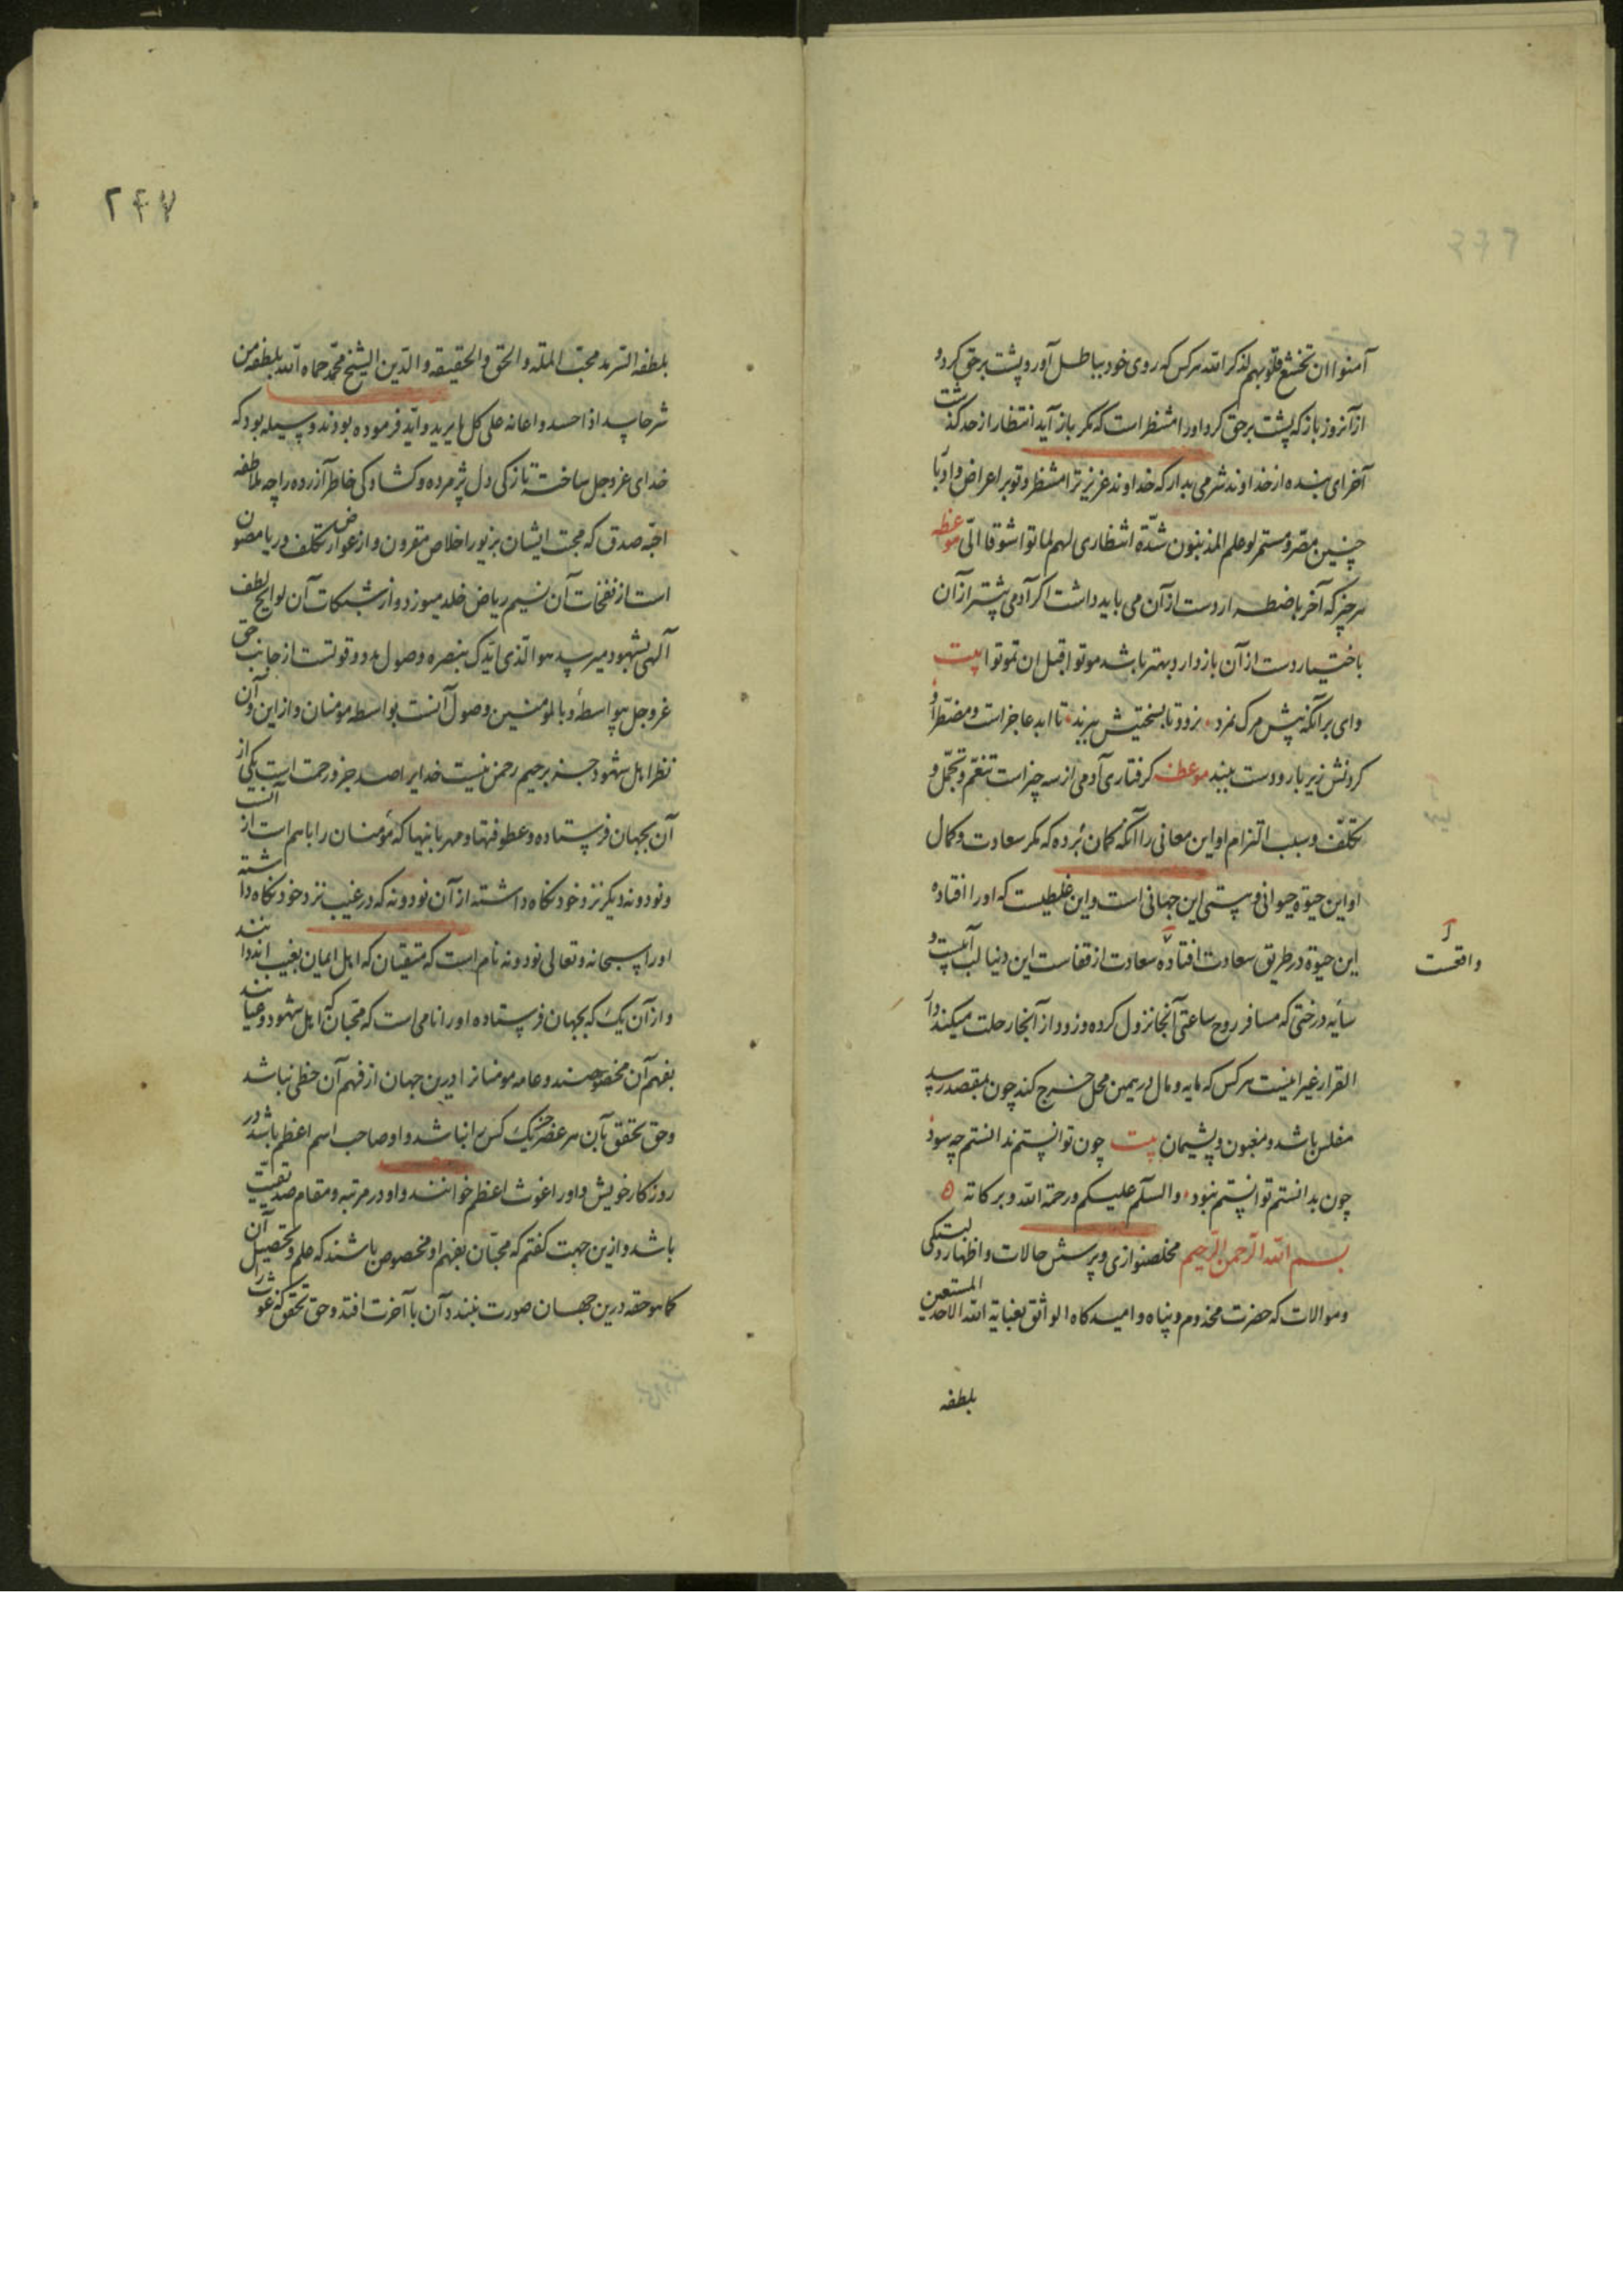 آمنوا ان تخشع قلوبهم لذکر الله هر کس که روی خود بباطل آورد و پشت بر حق کرد و
از آنروز باز که پشت بر حق کرد او را منتظر است که مکر باز آید انتظار از حد کذشت
آخر ای بنده از خداوند شرمی بدار که خداوند عزیز ترا منتظر و تو بر اعراض و ادبار
چنین مصر و مستمر لو علم المذنبون شدة انتظاری لهم لماتوا شوقا الیّ موعظه
هر چیز که آخر باضطرار دست از آن می باید داشت اکر آدمی پیشتر از آن
باختیار دست از آن باز دارد بهتر باشد موتوا قبل ان تموتوا بیت
وای بر آنکه پیش مرک نمرد زود تا بسختیش ببرند تا ابد عاجز است و مضطر او
کردنش زیر بار و دست ببند موعظه کرفتاری آدمی از سه چیز است تنعّم و تجمّل و
تکلّف و سبب التزام او این معانی را آنکه کمان برده که مکر سعادت و کمال
او این حیوة حیوانی و پستی این جهانی است و این غلطیست که او را افتاده
این حیوة در طریق سعادت افتاده سعادت از قفاست این دنیا لب آبیست و
واقعست
سایه درختی که مسافر روح ساعتی آنجا نزول کرده و زود از آنجا رحلت میکند دار
القرار غیر اینست هر کس که مایه و مال در همین محل خرج کند چون بمقصد رسد
مفلس باشد و مغبون و پشیمان بیت چون توانستم ندانستم چه سود
چون بدانستم توانستم نبود والسلم علیکم ورحمة الله وبرکاته
بسم الله الرحمن الرحیم مخلصنوازی و پرسش حالات و اظهار دلبستکی
و موالات که حضرت مخدوم و پناه و امیدکاه الواثق بعنایة الله الاحد المستعین
بلطفه
۲۴۷
بلطفه السرمد محب الملة والحق والحقیقة والدین الشیخ محمد حماه الله بلطفه من
شر حاسد اذا حسد و اعانه علی کل ما یرید و اید فرموده بودند وسیله بود که
خدای عز و جل ساخته تازکی دل پژمرده و کشادکی خاطر آزرده را چه ملاطفه
احبّه صدق که محبت ایشان بزیور اخلاص مقرون و از عوارض تکلف و ریا مصون
است از نفخات آن نسیم ریاض خلد میوزد و از شبکات آن لوایح لطف
آلهی بشهود میرسد هو الذی ایدک بنصره وصول مدد و قوتست از جانب حق
عز و جل بیواسطه و بالمومنین وصول آنست بواسطه مومنان و از این و آن
نظر اهل شهود جز برحیم رحمن نیست خدایرا صد جزو رحمت است یکی از
آن بجهان فرستاده و عطوفتها و مهربانیها که مؤمنان را باهم است از آنست
و نود و نه دیکر نزد خود نکاه داشته از آن نود و نه که در غیب نزد خود نکاه داشته
او را سبحانه و تعالی نود و نه نام است که متیقنان که اهل ایمان بغیب اند دانند
و از آن یک که بجهان فرستاده او را نامی است که محبان که اهل شهود و عیانند
بفهم آن مخصوصند و عامه مومنانرا درین جهان از فهم آن حظی نباشد
و حق تحقق بآن هر عصر جز یک کس را نباشد و او صاحب اسم اعظم باشد در
روزکار خویش و او را غوث اعظم خوانند و او در مرتبه و مقام صدیقیت
باشد و ازین جهت کفتم که محبّان بفهم او مخصوص باشند که علم و تحصیل آن
کما هو حقه درین جهان صورت نبندد آن با آخرت افتد و حق تحقق که غوث را